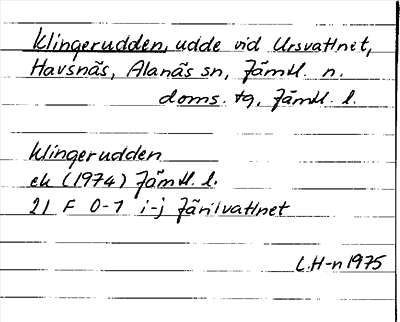 Klingerudden, udde vid Ursvattnet,
Havsnäs, Alanäs sn, Jämtl. n.
doms. tg, Jämtl. l.
Klingerudden
ek (1974) Jämtl. l.
21 F 0-1 i-j Järilvattnet
L.H-n 1975